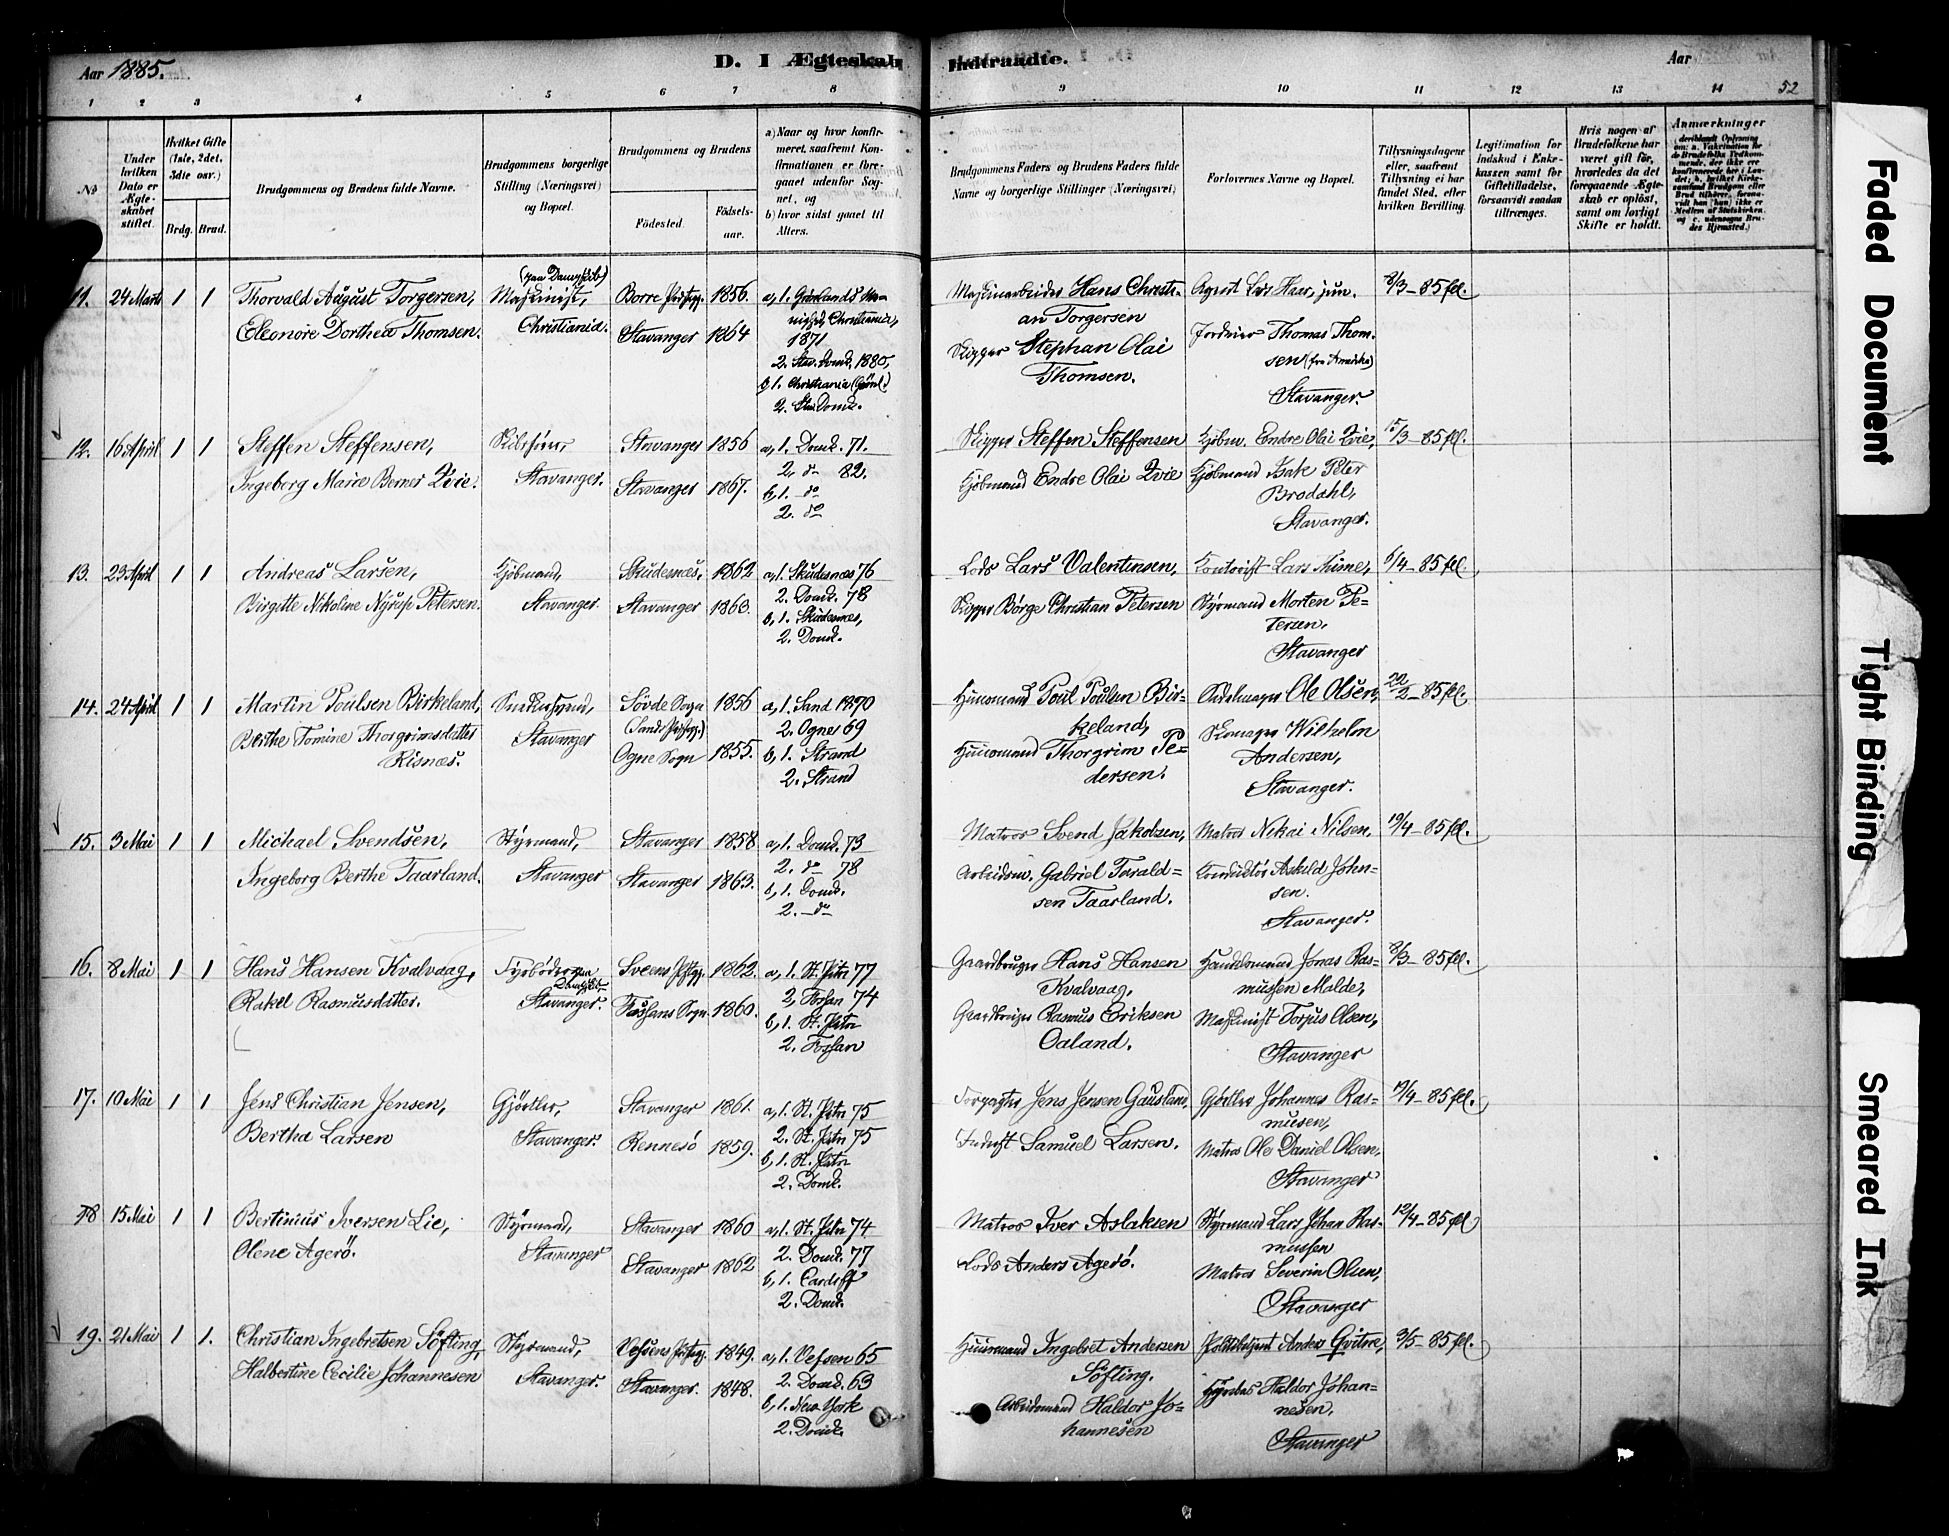 Aar 1885.
D. I Ægteskab Indtraadte.
Aar
52
1 2 3 4 5 6 7 8 9 10 11 12 13 14
No
Under hvilken Dato er Ægteskabet stiftet.
Hvilket Gifte (1ste, 2det, 3die osv.)
Brdg. Brud.
Brudgommens og Brudens fulde Navne.
Brudgommens borgerlige Stilling (Næringsvei) og Bopæl.
Brudgommens og Brudens
Födested.
Födselsaar.
a) Naar og hvor konfirmeret, saafremt Konfirmationen er foregaaet udenfor Sognet, og
b) hvor sidst gaaet til Alters.
Brudgommens Faders og Brudens Faders fulde Navne og borgerlige Stillinger (Næringsvei).
Forlovernes Navne og Bopæl.
Tillysningsdagene eller, saafremt Tillysning ei har fundet Sted, efter hvilken Bevilling.
Legitimation for Indskud i Enkekassen samt for Giftetilladelse, forsaavidt saadan tiltrænges.
Hvis nogen af Brudefolkene har været gift för, hvorledes da det foregaaende Ægteskab er oplöst, samt om lovligt Skifte er holdt.
Anmærkninger
11. 24 Marts 1 1 Thorvald August Torgersen, Maskinist, (paa Dampskib) Borre Præstegj. 1856. a, 1. Grønlands Menighed, Christiania, 1871
Christiania.
Eleonore Dorthea Thomsen. Stavanger 1864
2. Stav. Domk. 1880,
b, 1. Christiania (Grønl.)
2. Stav. Domk.
Maskinarbeider Hans Christian Torgersen
Skipper Stephan Olai Thomsen.
Agent Lars Haar, jun.
Jordeier Thomas Thomsen (fra Amerika)
Stavanger.
8/3 - 85 fl.
12. 16 April 1 1 Steffen Steffensen, Skibsfører, Stavanger 1856 a, 1. Domk. 71.
Ingeborg Marie Berner Qvie. Stavanger. Stavanger 1867. 2. do 82.
b, 1. do
2. do
Skipper Steffen Steffensen
Kjöbmand Endre Olai Qvie
Kjöbm. Endre Olai Qvie,
Kjöbmand Isak Peter Brodahl,
Stavanger.
15/3 - 85 fl.
13. 23 April 1 1 Andreas Larsen, Kjöbmand, Skudesnæs, 1862 a, 1. Skudesnæs 76
Birgitte Nikoline Nyrup Petersen. Stavanger. Stavanger 1863. 2. Domk. 78
b, 1. Skudesnæs,
2. Domk.
Lods Lars Valentinsen,
Skipper Börge Christian Petersen
Kontorist Lars Thime,
Styrmand Morten Petersen,
Stavanger
6/4 - 85 fl.
14. 24 April 1 1 Martin Poulsen Birkeland, Snedkersvend, Sövde Sogn 1856 a, 1. Sand 1870
(Sands Præstegj.)
Berthe Tomine Thorgrimsdatter Risnæs. Stavanger Ogne Sogn 1855. 2. Ognes 69
b, 1. Strand
2. Strand
Huusmand Poul Poulsen Birkeland,
Huusmand Thorgrim Pedersen.
Sadelmager Ole Olsen,
Skomager Wilhelm Andersen,
Stavanger.
22/2 - 85 fl.
15. 3 Mai 1 1 Michael Svendsen, Styrmand, Stavanger 1858 a, 1. Domk. 73
Ingeborg Berthe Taarland. Stavanger Stavanger 1863. 2. do 78
b, 1. Domk.
2. do
Matros Svend Jakobsen,
Arbeidsm. Gabriel Taraldsen Taarland.
Matros Nikai Nilsen,
Konduktör Askild Johnsen.
Stavanger.
19/4 - 85 fl.
16. 8 Mai 1 1 Hans Hansen Kvalvaag, Fyrböder paa Dampskib Sveens Præstegj. 1862. a, 1. St. Petri 77
Rakel Rasmusdatter. Stavanger. Fossans Sogn 1860. 2, Forsan 74
b, 1. St. Petri
2. Forsan
Gaardbruger Hans Hansen Kvalvaag,
Gaardbruger Rasmus Eriksen Oaland.
Handelsmand Jonas Rasmussen Malde,
Maskinist Torjus Olsen,
Stavanger
8/3 - 85 fl.
17. 10 Mai 1 1 Jens Christian Jensen, Gjörtler, Stavanger 1861. a, 1. St. Petri 75
Bertha Larsen Stavanger. Rennesö 1859. 2. St. Petri 75
b, 1. St. Petri
2. Domk.
Forpagter Jens Jensen Gausland,
Inderst Samuel Larsen.
Gjörtler Johannes Rasmusen,
Matros Ole Daniel Olsen,
Stavanger
19/4 - 85 fl.
18 15 Mai 1 1 Bertinius Iversen Lie, Styrmand, Stavanger 1860 a, 1. St. Petri 74
Olene Agerö. Stavanger Stavanger 1862 2. Domk. 77
b, 1. Cardiff
2. Domk.
Matros Iver Aslaksen
Lods Anders Agerö.
Styrmand Lars Johan Rasmussen
Matros Severin Olsen,
Stavanger
12/4 - 85 fl.
19. 21 Mai 1 1. Christian Ingebretsen Söfting, Styrmand, Vefsens Præstegj. 1849. a, 1. Vefsen 65
Halbertine Cecilie Johannesen Stavanger. Stavanger. 1848. 2. Domk. 63
b, 1. New York
2. Domk.
Huusmand Ingebret Andersen Söfting.
Arbeidsmand Haldor Johannesen
Politibetjent Anders Qvitre,
Haldor Johannesen,
Stavanger
3/5 - 85 fl.
Faded Document
Tight Binding
Smeared Ink